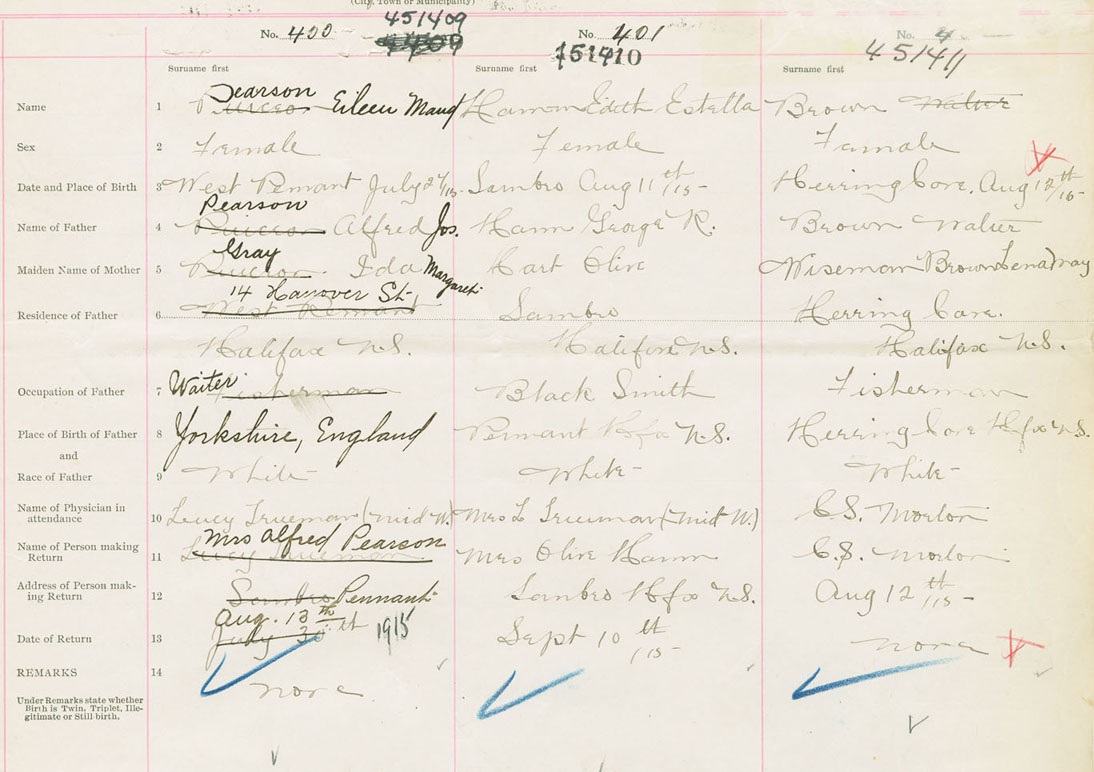 (City, Town or Municipality)
451409
No. 400 No. 401 No. 4
451410 45141
Surname first Surname first Surname first
Pearson
Name 1 Eileen Maud Hamm Edith Estella Brown Walter
Sex 2 Female Female Female
Date and Place of Birth 3 West Pennant July 27/15- Sambro Aug 11th/15- Herring Cove. Aug 12th/15-
Pearson
Name of Father 4 Alfred Jos. Hamm George R. Brown Walter
Gray
Maiden Name of Mother 5 Ida Margaret Hart Olive Wiseman Brown Lena May
14 Hanover St.
Residence of Father 6 West Pennant Sambro Herring Cove.
Halifax N.S. Halifax N.S. Halifax N.S.
Occupation of Father 7 Waiter Fisherman Black Smith Fisherman
Place of Birth of Father 8 Yorkshire, England Pennant Hfx N.S. Herring Cove Hfx N.S.
and
Race of Father 9 White White White
Name of Physician in
attendance 10 Lucy Trueman (Mid W.) Mrs L Trueman (Mid W.) C.S. Morton
Mrs Alfred Pearson
Name of Person making
Return 11 Lucy Trueman Mrs Olive Hamm C.S. Morton
Address of Person mak-
ing Return 12 Sambro Pennant Sambro Hfx N.S. Aug 12th/15-
Aug. 13th
Date of Return 13 July 30th 1915 Sept 10th/15- nora
REMARKS 14 nora
Under Remarks state whether
Birth is Twin, Triplet, Ille-
gitimate or Still birth.